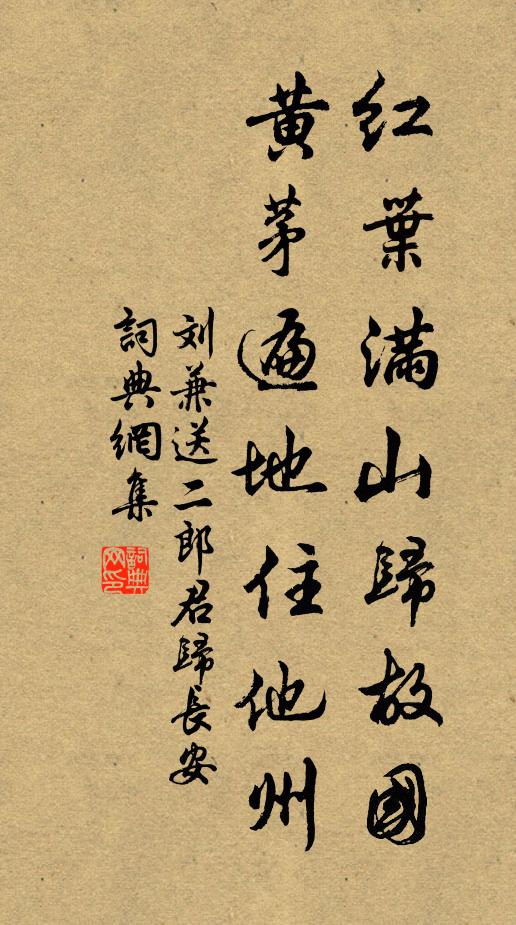 红葉滿山歸故國
黄茅遍地住他州
刘兼送二郎君歸長安
詞典網集
詞典网印